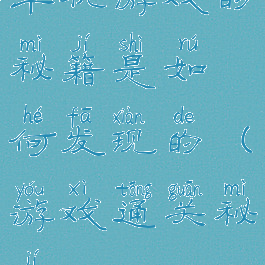 单机游戏的
mì jí shì rú
秘籍是如
hé fā xiàn de
何发现的（
yóu xì tōng guān mì
游戏通关秘
jí